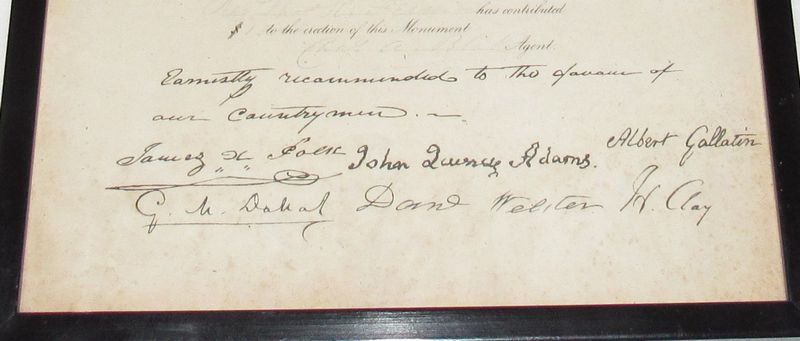 has contributed
$ to the erection of this Monument
Agent.
Earnestly recommended to the favour of
our Countrymen. —
James K Polk John Quincy Adams. Albert Gallatin
G. M. Dallas Danl Webster H. Clay